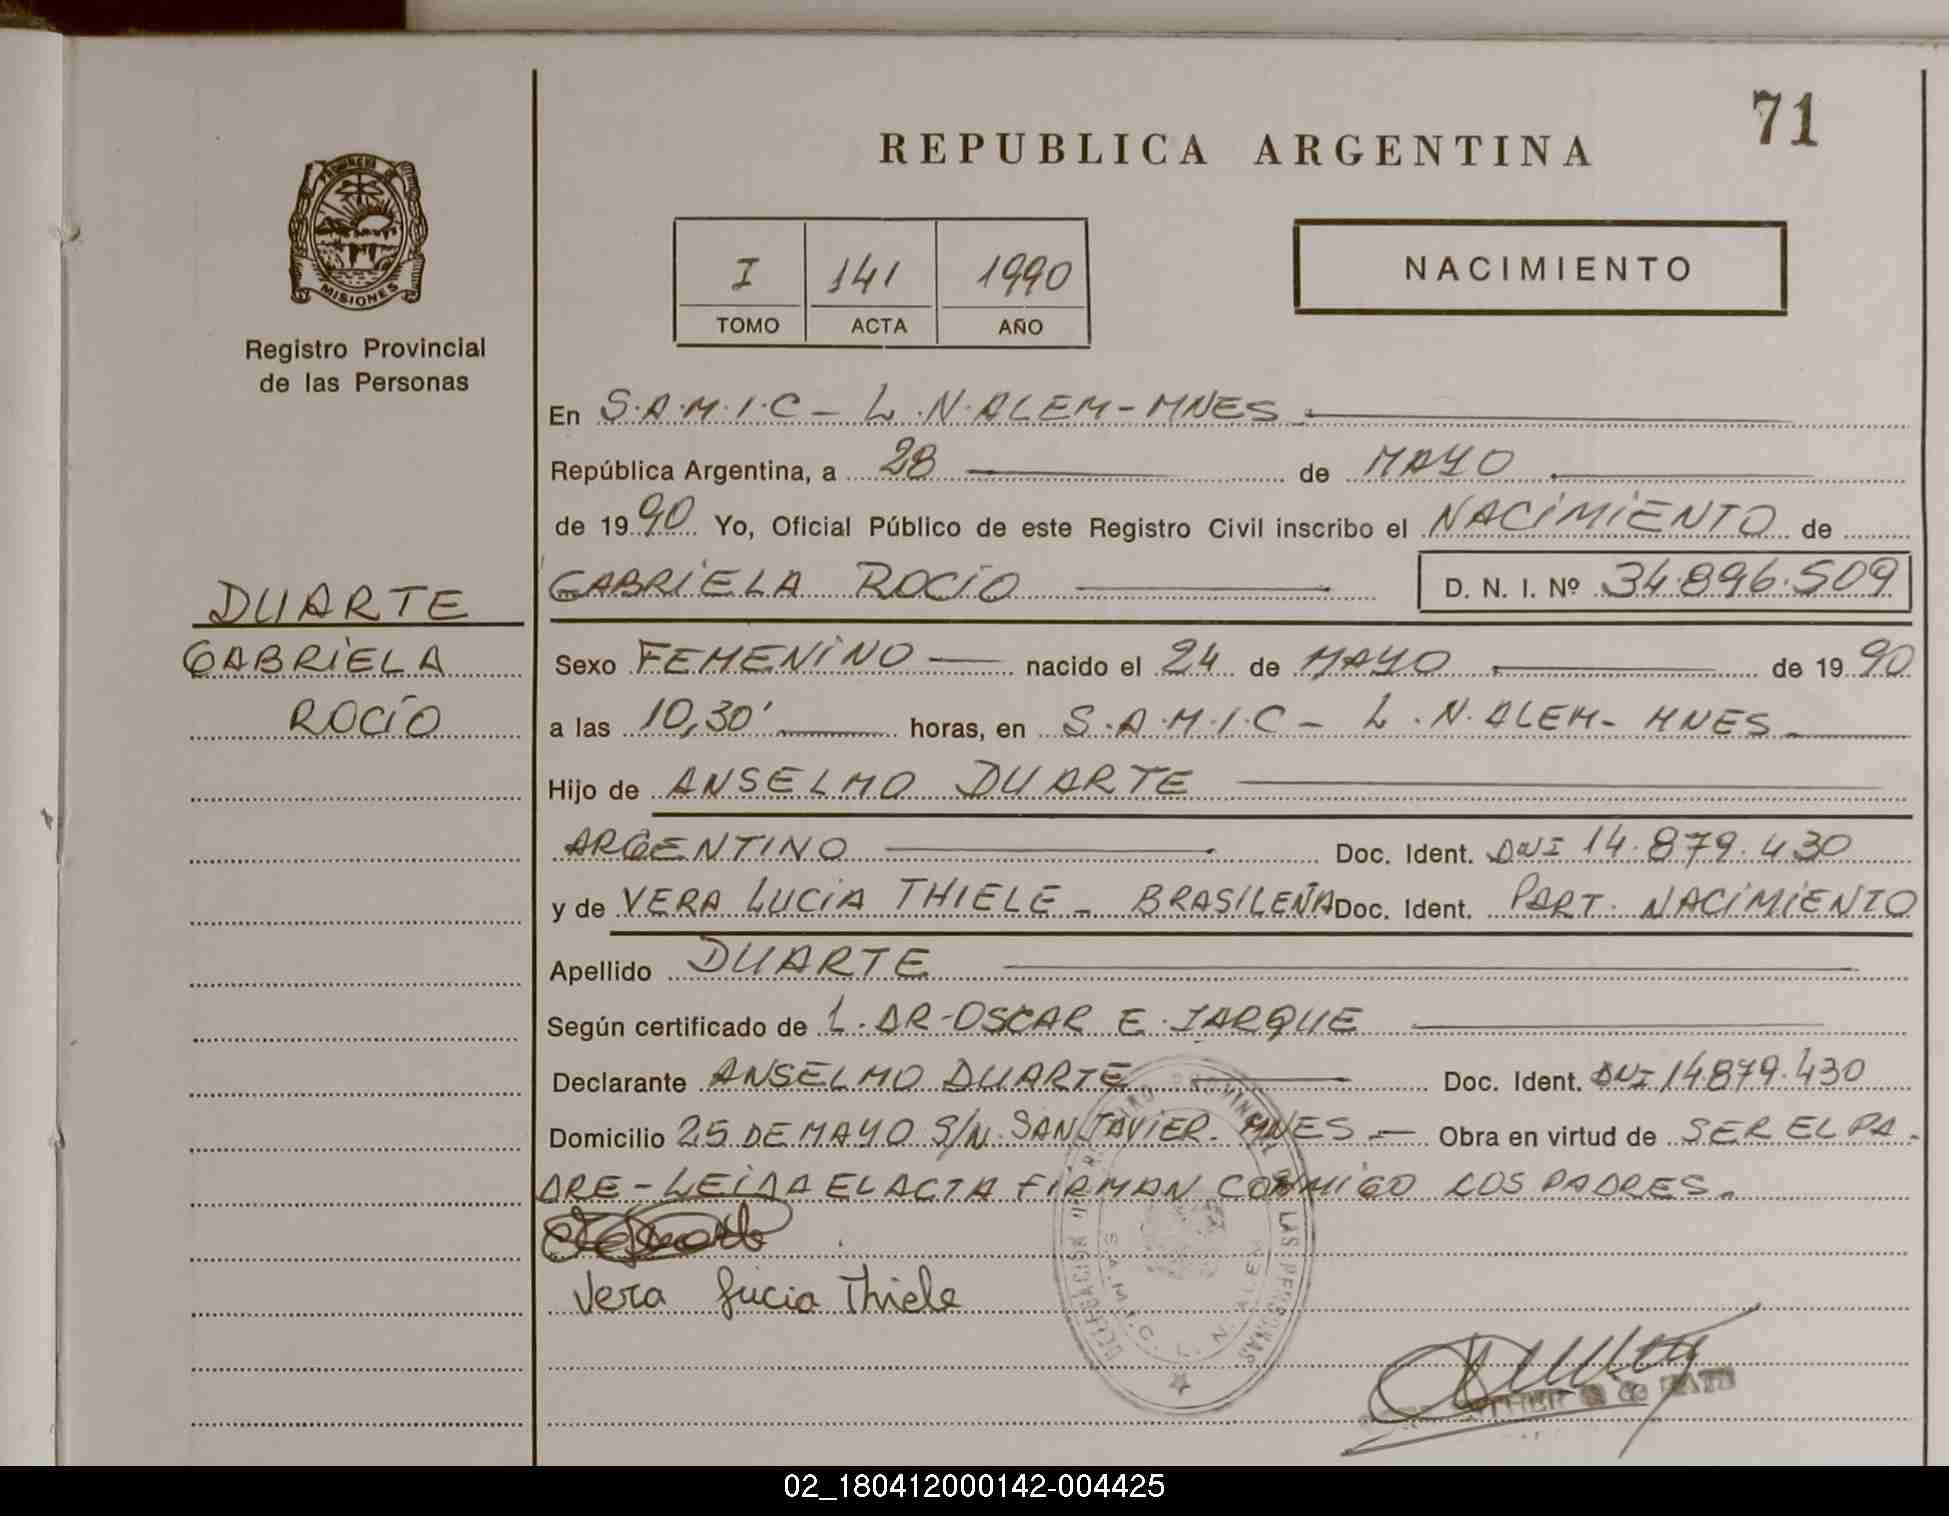 71
REPUBLICA ARGENTINA
MISIONES
Registro Provincial
de las Personas
I 141 1990
TOMO ACTA AÑO
NACIMIENTO
En S.A.M.I.C - L.N.ALEM-MNES.
República Argentina, a 28 de MAYO
de 1990 Yo, Oficial Público de este Registro Civil inscribo el NACIMIENTO de
GABRIELA ROCÍO D. N. I. Nº 34.896.509
DUARTE
GABRIELA
ROCÍO
Sexo FEMENINO nacido el 24 de MAYO de 1990
a las 10,30' horas, en S.A.M.I.C - L.N.ALEM- MNES.
Hijo de ANSELMO DUARTE
ARGENTINO Doc. Ident. DNI 14.879.430
y de VERA LUCIA THIELE - BRASILEÑA Doc. Ident. PART. NACIMIENTO
Apellido DUARTE
Según certificado de L. DR-OSCAR E. JARQUE
Declarante ANSELMO DUARTE Doc. Ident. DNI 14.879.430
Domicilio 25 DE MAYO S/N. SAN JAVIER. MNES - Obra en virtud de SER EL PA-
DRE - LEIDA EL ACTA FIRMAN CONMIGO LOS PADRES.
Vera Lucia Thiele
DELEGACION DEL REGISTRO PROVINCIAL DE LAS PERSONAS
S.A.M.I.C. L. N. ALEM
02_180412000142-004425